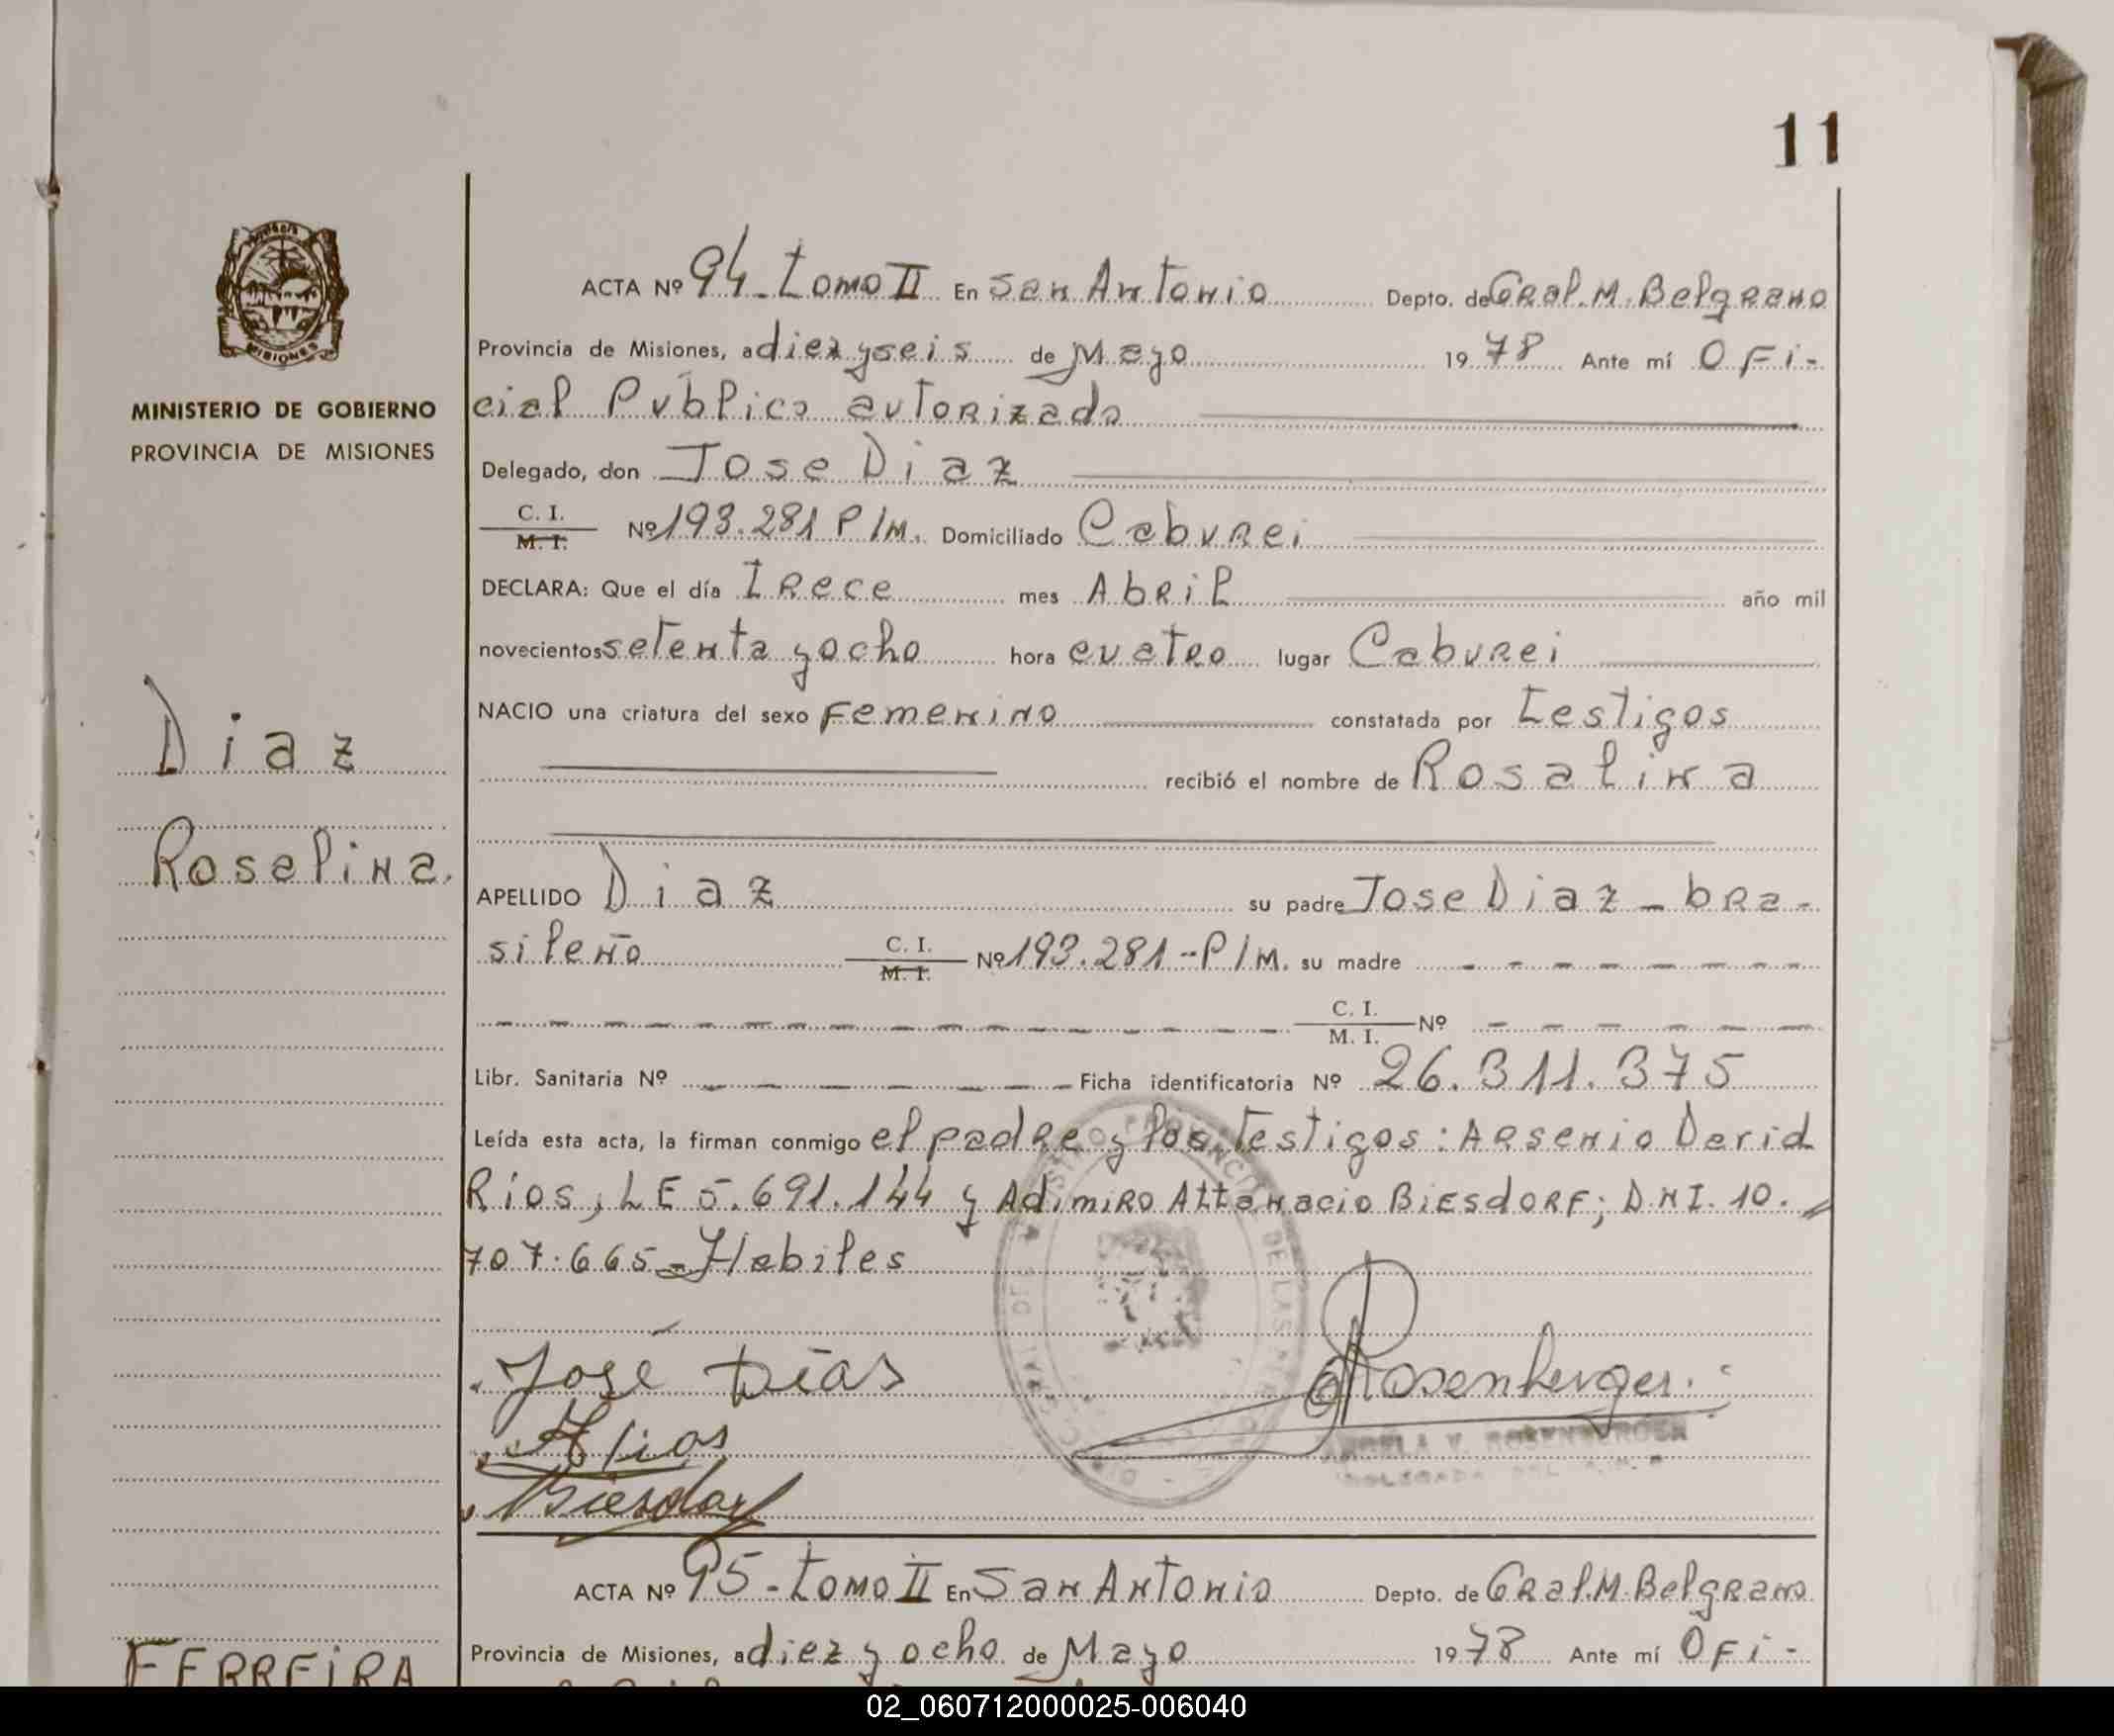 11
MISIONES
MINISTERIO DE GOBIERNO
PROVINCIA DE MISIONES
Diaz
Rosalina.
ACTA Nº 94 - tomo II En San Antonio Depto. de Gral. M. Belgrano
Provincia de Misiones, a diez y seis de Mayo 1978 Ante mí Ofi-
cial Público autorizado
Delegado, don Jose Diaz
C. I.
M. I. Nº 193.281 P/M. Domiciliado Caburei
DECLARA: Que el día trece mes Abril año mil
novecientos setenta y ocho hora cuatro lugar Caburei
NACIO una criatura del sexo Femenino constatada por testigos
recibió el nombre de Rosalina
APELLIDO Diaz su padre Jose Diaz - bra-
sileño C. I. M. I. Nº 193.281 - P/M. su madre
C. I. M. I. Nº
Libr. Sanitaria Nº Ficha identificatoria Nº 26.311.375
Leída esta acta, la firman conmigo el padre y los testigos: Arsenio David
Rios, LE 5.691.144 y Adimiro Attanacio Biesdorf; D.N.I. 10.
707.665 - Habiles
José Días
Rosenberger
ARios
Biesdorf
ANGELA V. ROSENBERGER
DELEGADA
ACTA Nº 95 - tomo II En San Antonio Depto. de Gral. M. Belgrano
Provincia de Misiones, a diez y ocho de Mayo 1978 Ante mí Ofi-
FERREIRA
02_060712000025-006040